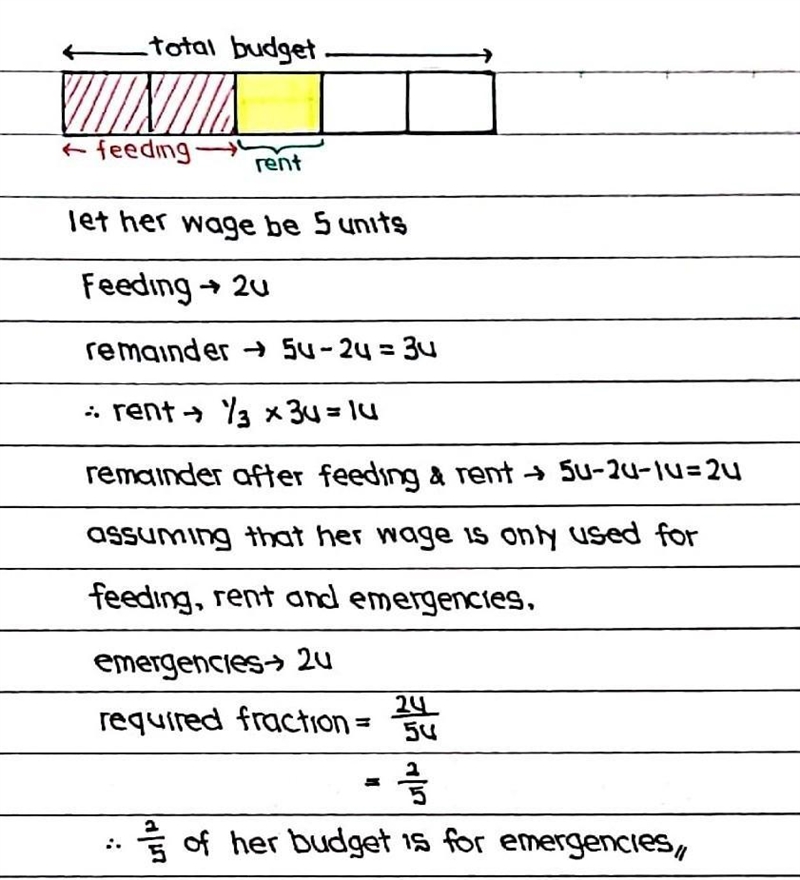 total budget
feeding
rent
let her wage be 5 units
Feeding → 2u
remainder → 5u - 2u = 3u
∴ rent → 1/3 × 3u = 1u
remainder after feeding & rent → 5u-2u-1u=2u
assuming that her wage is only used for
feeding, rent and emergencies.
emergencies → 2u
required fraction = 2u/5u
= 2/5
∴ 2/5 of her budget is for emergencies,,